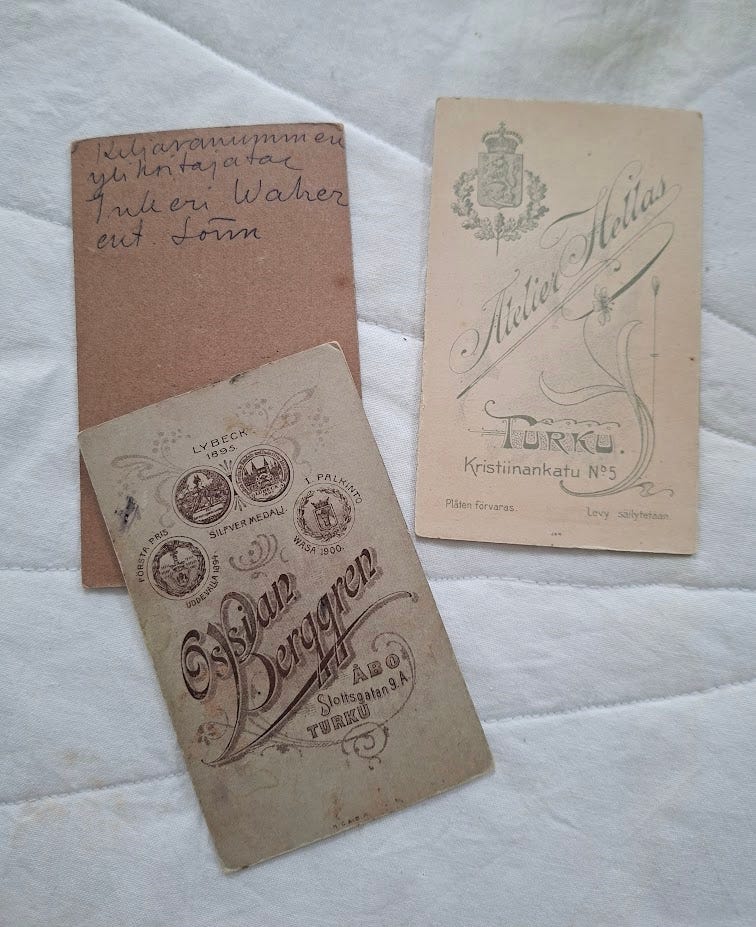 Kiljavanummen
ylihoitajatar
Inkeri Walver
ent. Lönn
Atelier Hellas
TURKU.
Kristiinankatu No 5
Plåten förvaras.
Levy säilytetään.
LYBECK
1895.
SILFVERMEDALJ.
I PALKINTO
WASA 1900.
FÖRSTA PRIS
UDDEVALLA 1894
Ossian
Berggren
ÅBO
Slottsgatan 9.A.
TURKU